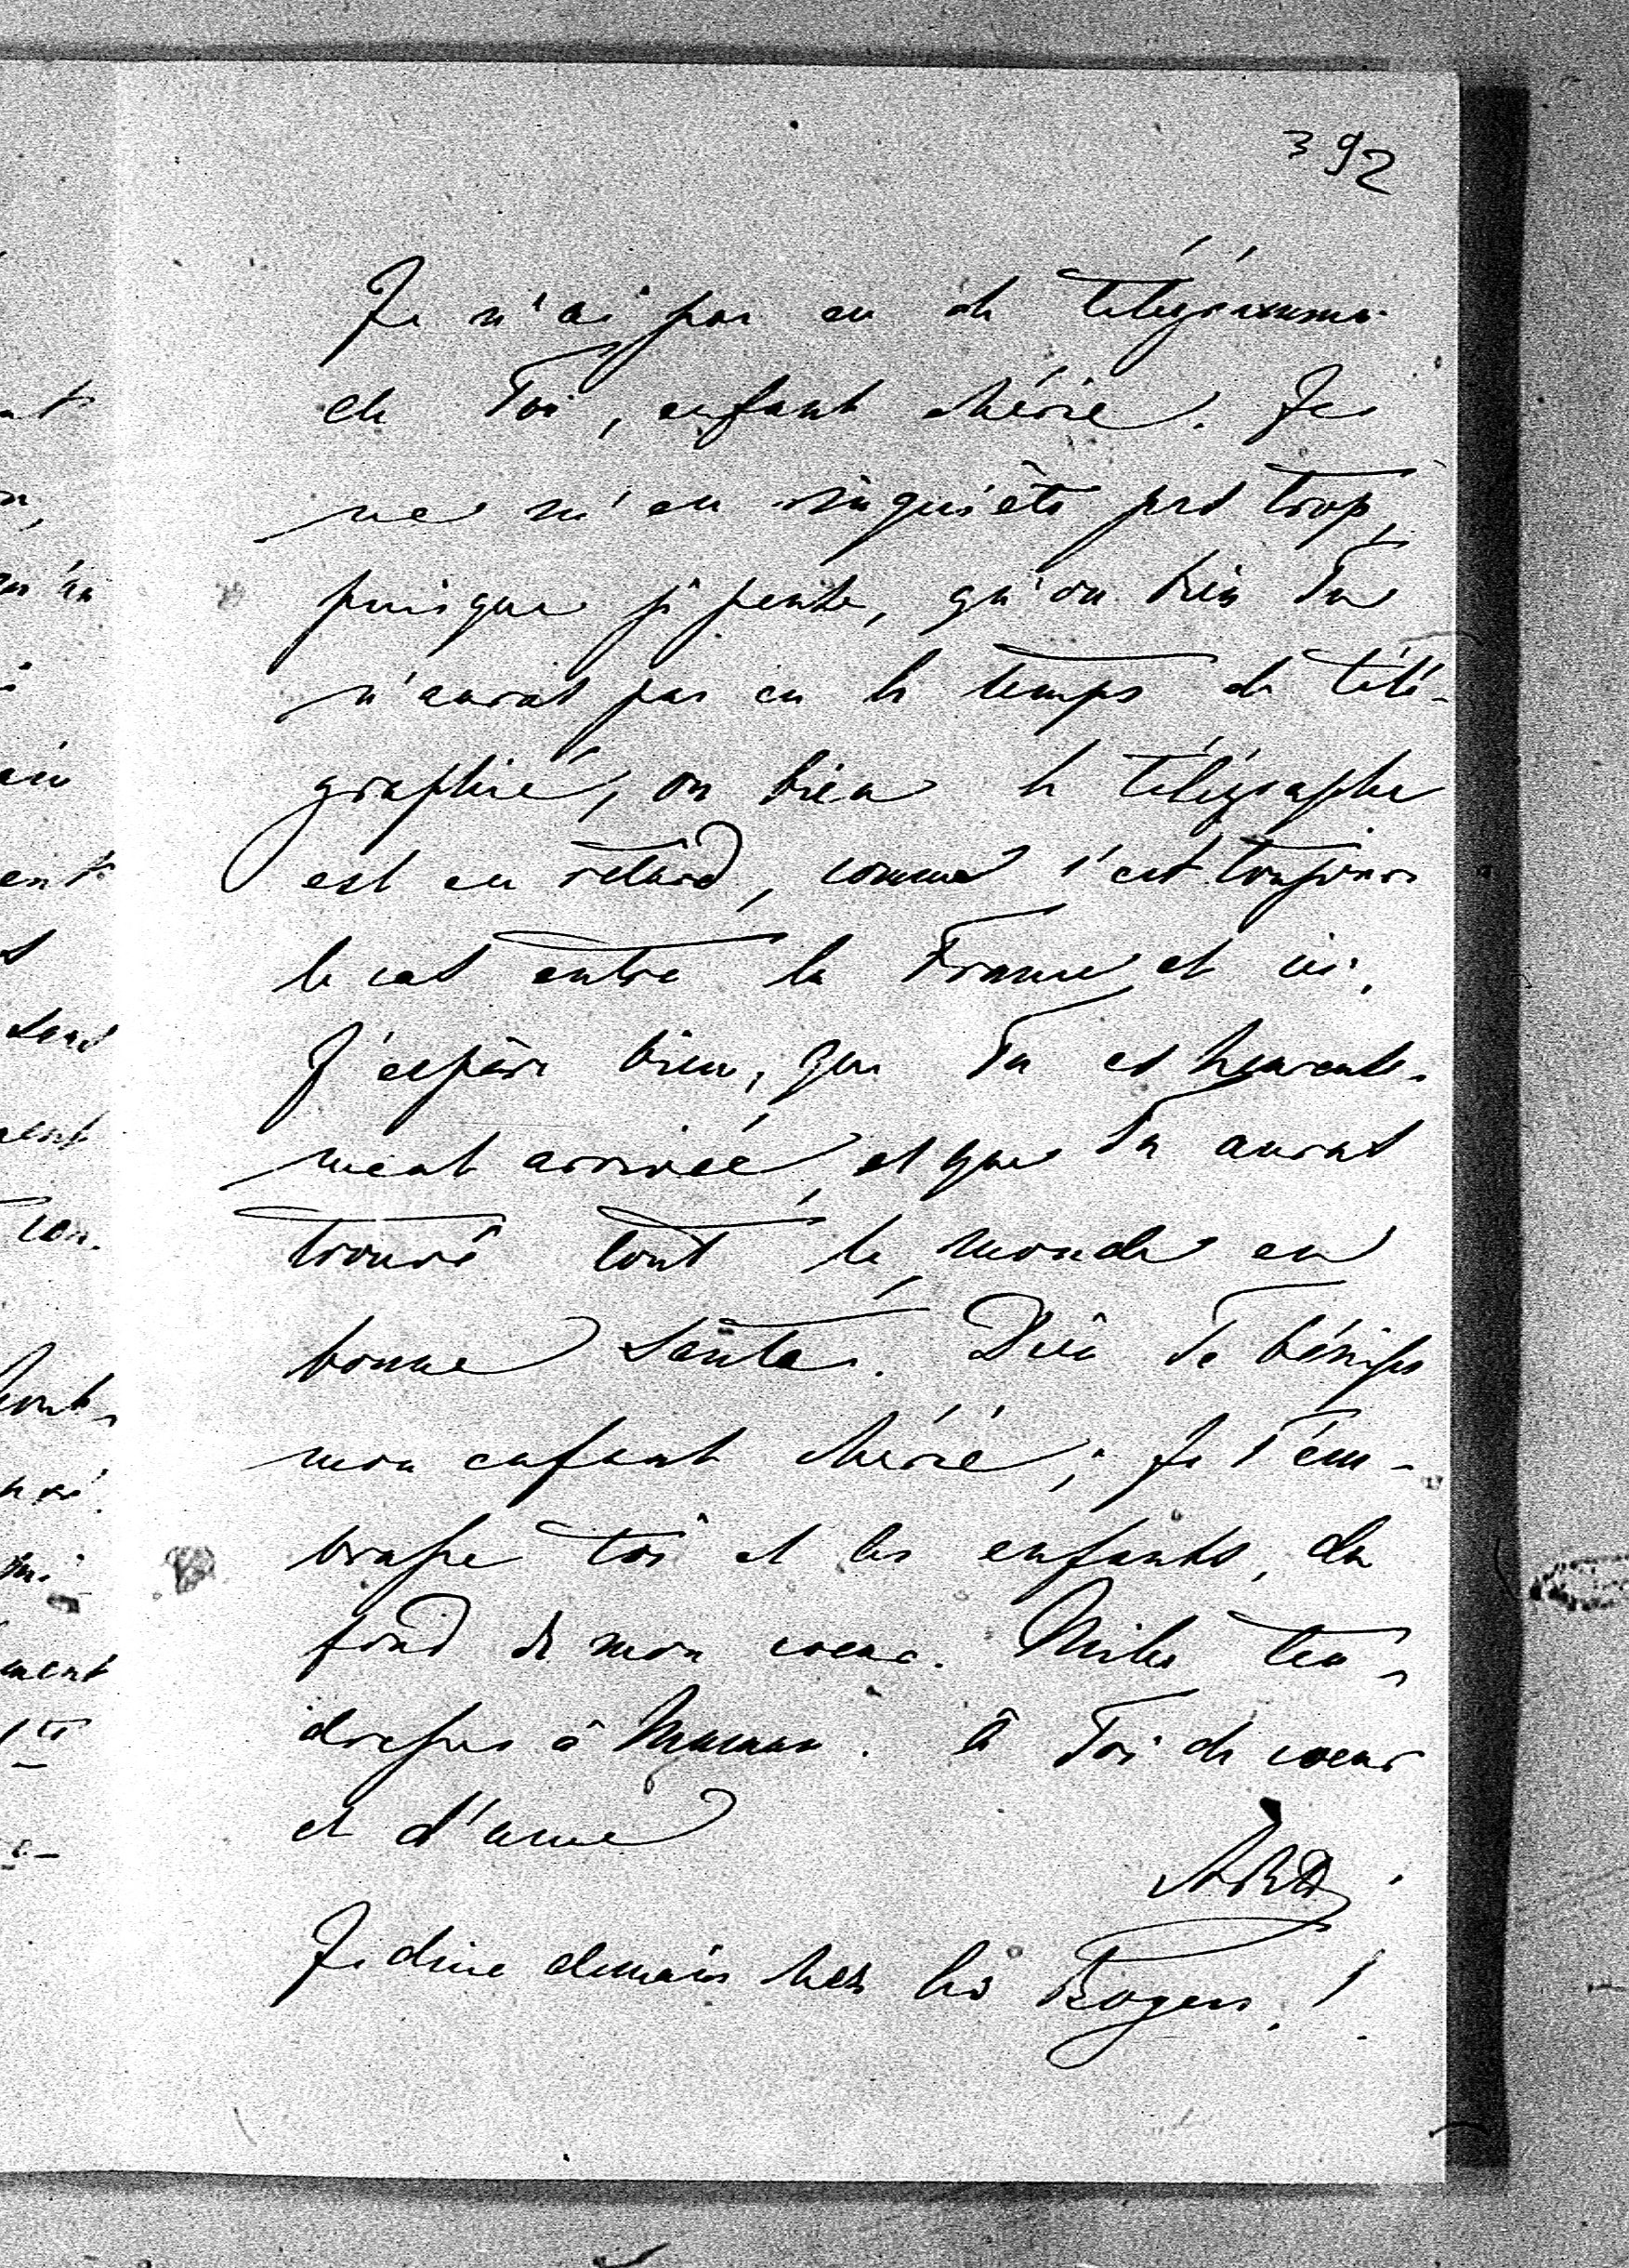 392
Je n'ai pas eu de télégramme
de Toi, enfant chérie. Je
ne m'en inquiète pas trop,
puisque je pense, qu'ou bien Tu
n'auras pas eu le temps de télé-
graphié, ou bien le télégraphe
est en retard, comme c'est toujours
le cas entre la France et ici.
J'espère bien, que Tu es heureuse-
ment arrivée, et que Tu auras
trouvé tout le monde en
bonne santé. Dieu Te bénisse
mon enfant chérie; Je T'em-
brasse toi et les enfants, du
fond de mon coeur. Milles ten-
dresses à Maman. à Toi de coeur
et d'ame
Je dine demain chez les Rogers!